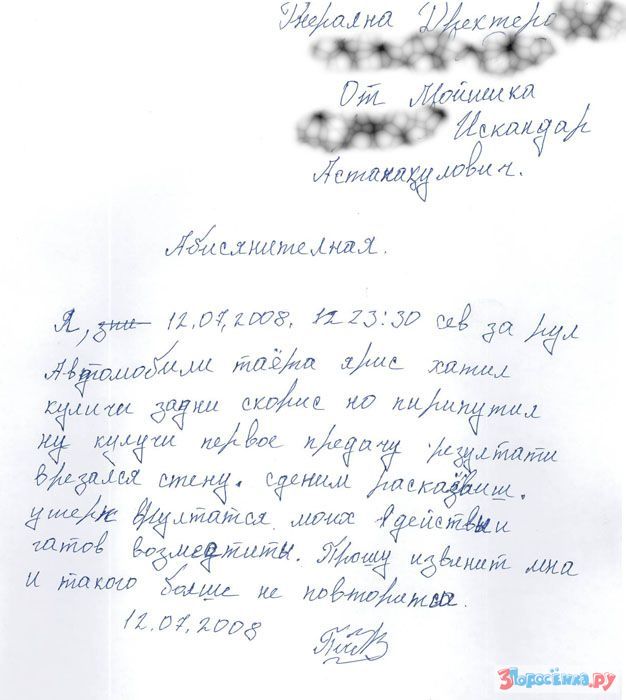 Гнерална Директеро
От Мойшика
Искандар
Астанакулович.
Абисянителная.
Я, 12.07.2008. 12 23:30 сев за рул
Автомобили таёта ярис хатил
куличи задни скорис но пирипутил
ну кулучи первое предачу резултати
врезался стену. сденим раскаёваиш.
ушерп врултатся моих действи
гатов возместиты. Прошу извенит мна
и такого болше не повторится.
12.07.2008
Поросёнка.ру